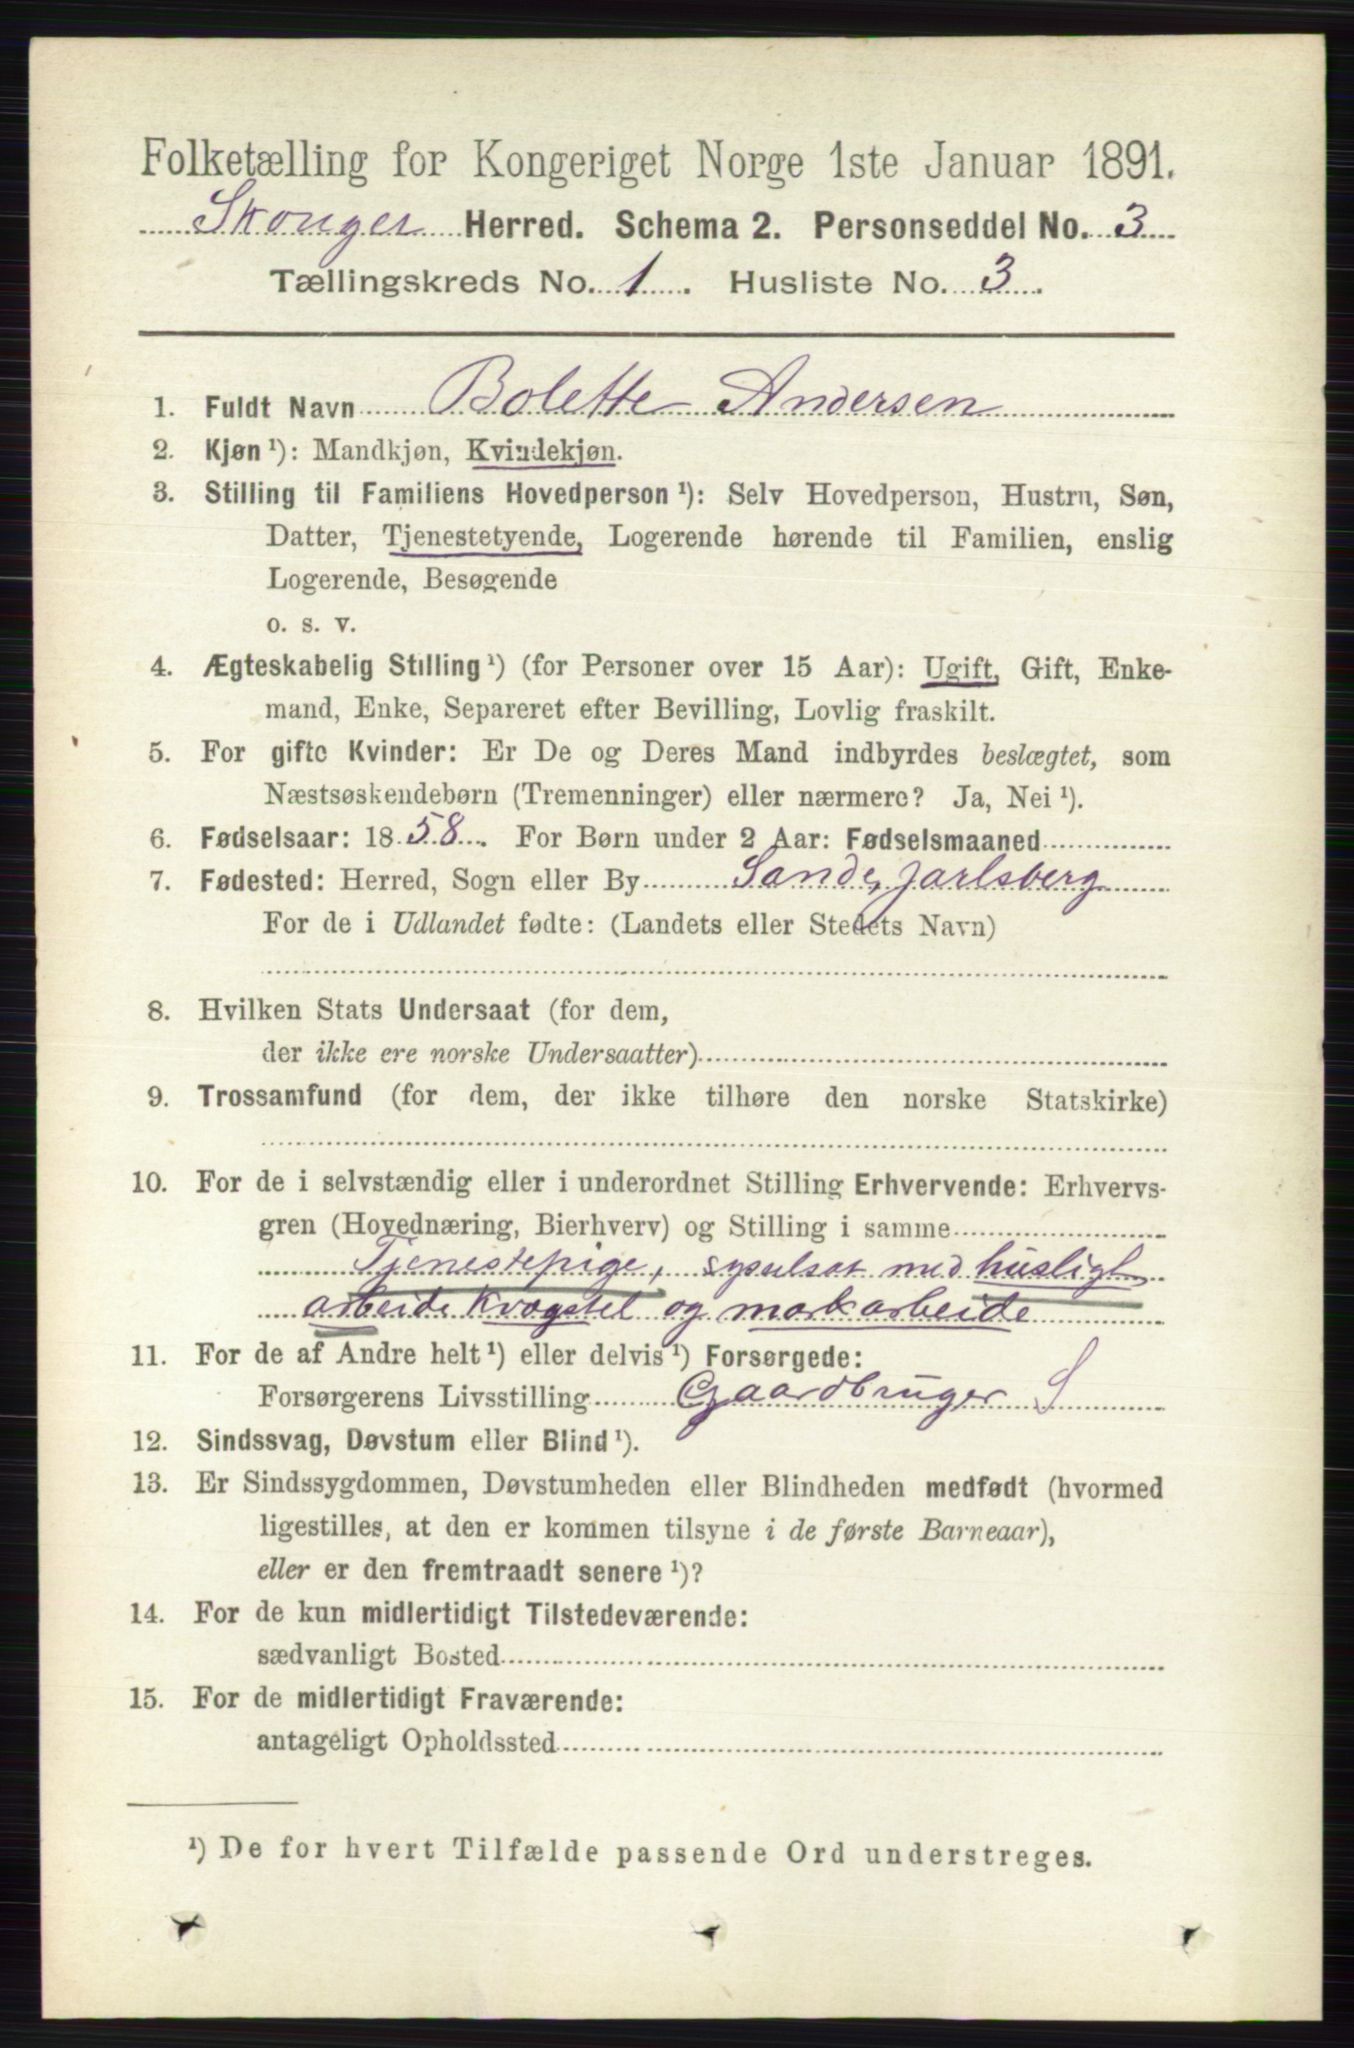 Folketælling for Kongeriget Norge 1ste Januar 1891.
Skouger Herred. Schema 2. Personseddel No. 3
Tællingskreds No. 1. Husliste No. 3.
1. Fuldt Navn Bolette Andersen
2. Kjøn¹): Mandkjøn, Kvindekjøn.
3. Stilling til Familiens Hovedperson¹): Selv Hovedperson, Hustru, Søn,
Datter, Tjenestetyende, Logerende hørende til Familien, enslig
Logerende, Besøgende
o. s. v.
4. Ægteskabelig Stilling¹) (for Personer over 15 Aar): Ugift, Gift, Enke-
mand, Enke, Separeret efter Bevilling, Lovlig fraskilt.
5. For gifte Kvinder: Er De og Deres Mand indbyrdes beslægtet, som
Næstsøskendebørn (Tremenninger) eller nærmere? Ja, Nei¹).
6. Fødselsaar: 1858. For Børn under 2 Aar: Fødselsmaaned
7. Fødested: Herred, Sogn eller By Sande, Jarlsberg
For de i Udlandet fødte: (Landets eller Stedets Navn)
8. Hvilken Stats Undersaat (for dem,
der ikke ere norske Undersaatter)
9. Trossamfund (for dem, der ikke tilhøre den norske Statskirke)
10. For de i selvstændig eller i underordnet Stilling Erhvervende: Erhvervs-
gren (Hovednæring, Bierhverv) og Stilling i samme
Tjenestepige, syselsat med husligt
arbeide Kvægstel og markarbeide
11. For de af Andre helt¹) eller delvis¹) Forsørgede:
Forsørgerens Livsstilling Gaardbruger S
12. Sindssvag, Døvstum eller Blind¹).
13. Er Sindssygdommen, Døvstumheden eller Blindheden medfødt (hvormed
ligestilles, at den er kommen tilsyne i de første Barneaar),
eller er den fremtraadt senere¹)?
14. For de kun midlertidigt Tilstedeværende:
sædvanligt Bosted
15. For de midlertidigt Fraværende:
antageligt Opholdssted
¹) De for hvert Tilfælde passende Ord understreges.